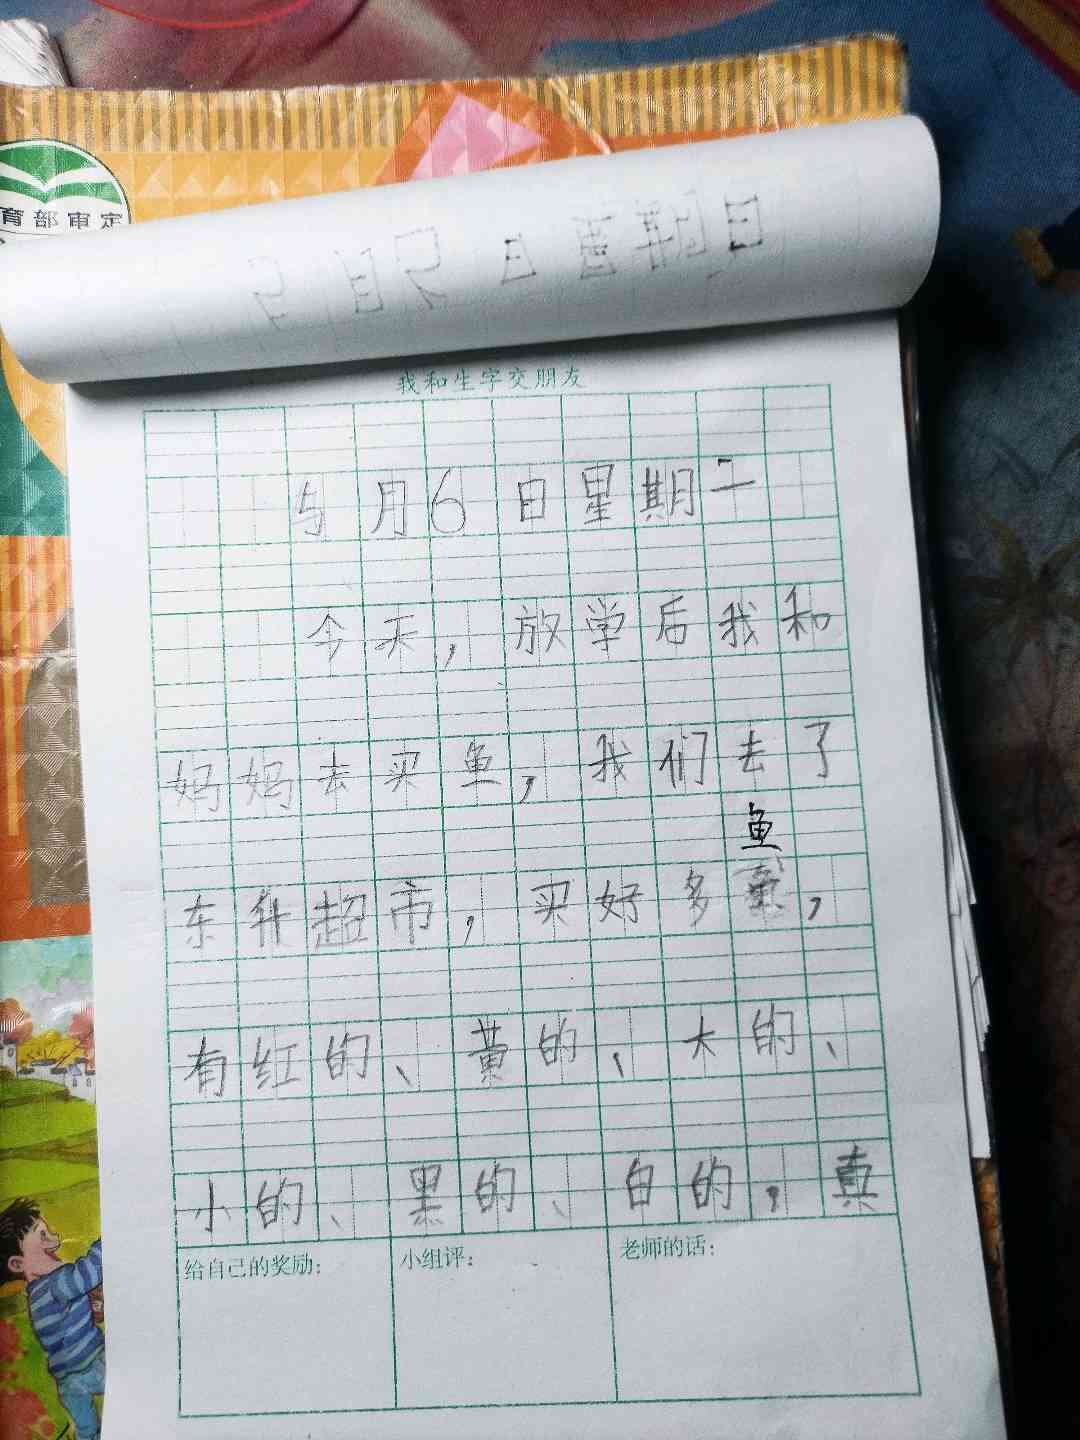 育部审定
我和生字交朋友
5月6日星期二
今天,放学后我和
妈妈去买鱼,我们去了
鱼
东升超市,买好多,
有红的、黄的、大的、
小的、黑的、白的,真
给自己的奖励: 小组评: 老师的话: